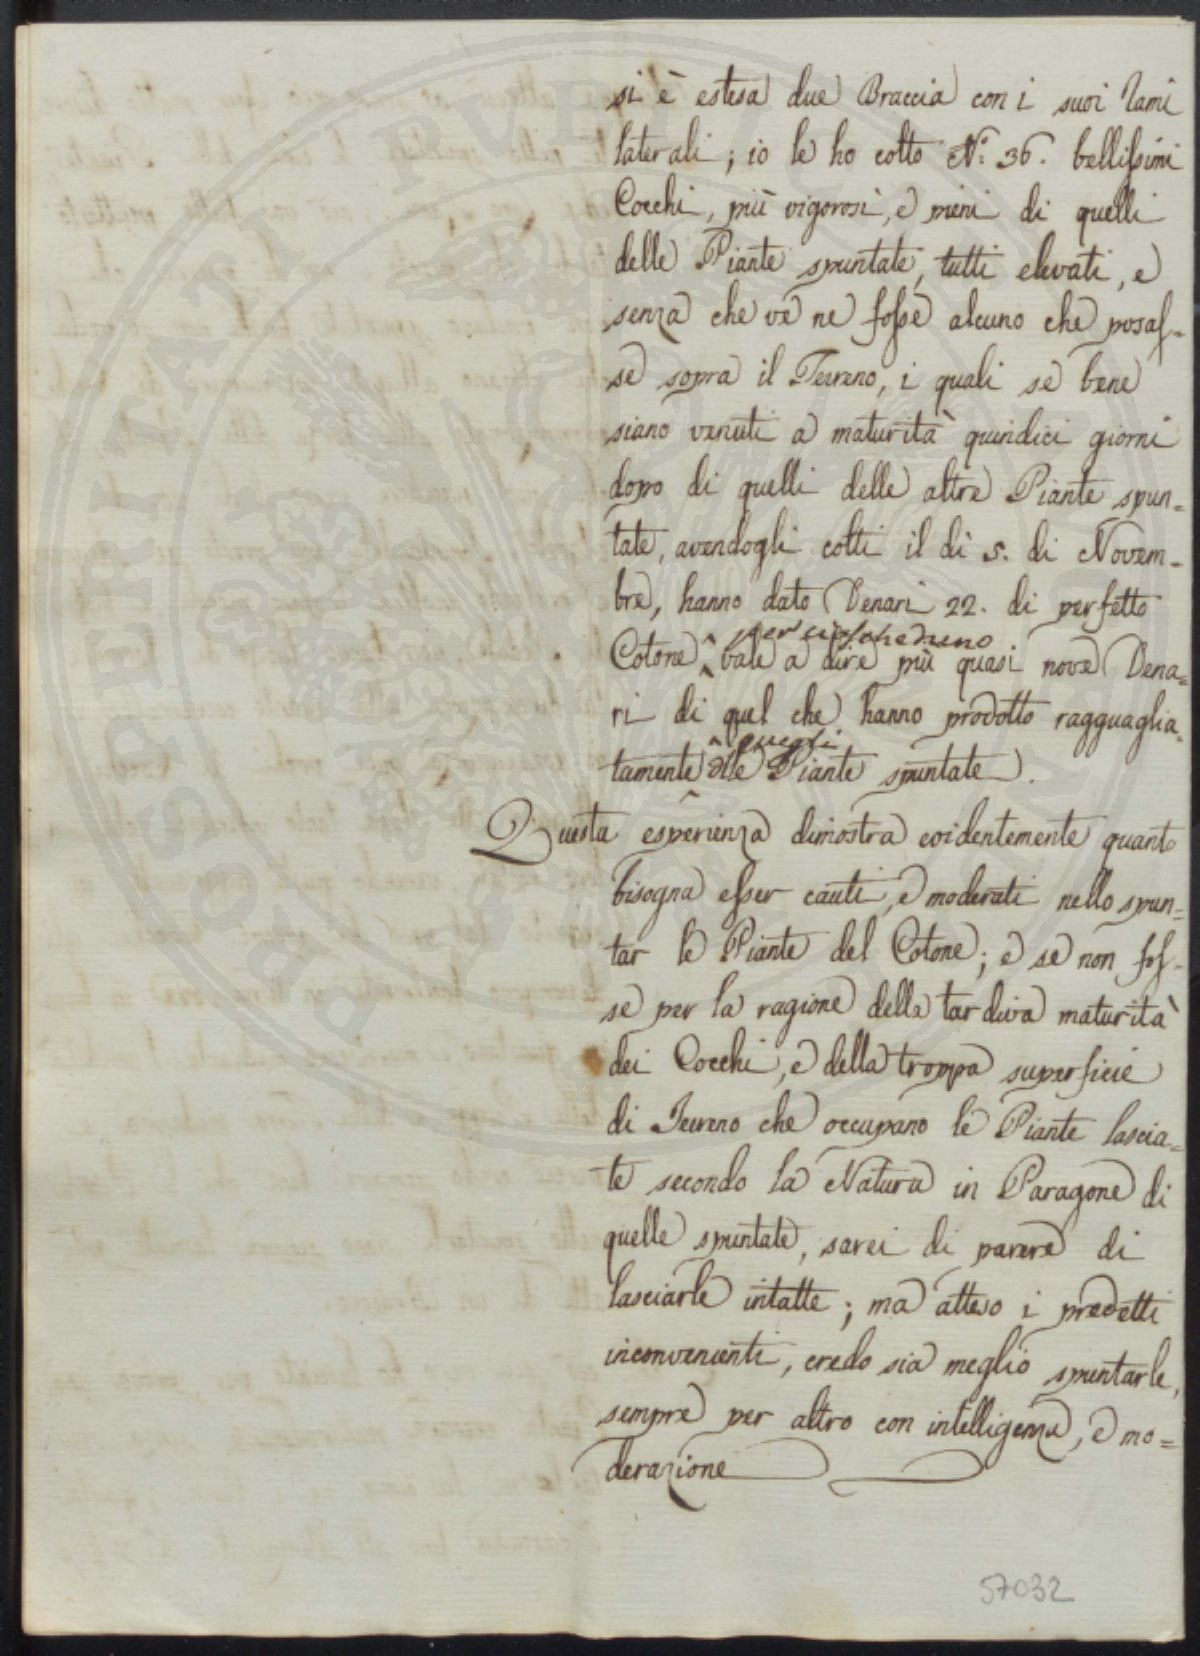 si è estesa due Braccia con i suoi Rami
laterali; io le ho colto N.° 36. bellissimi
Cocchi, più vigorosi, e pieni di quelli
delle Piante spuntate, tutti elevati, e
senza che ve ne fosse alcuno che posas-
se sopra il Terreno, i quali se bene
siano venuti a maturità quindici giorni
dopo di quelli delle altre Piante spun-
tate, avendogli colti il dì 5. di Novem-
bre, hanno dato Denari 22. di perfetto
per ciascheduno
Cotone vale a dire più quasi nove Dena-
ri di quel che hanno prodotto ragguaglia-
quegli
tamente dlle Piante spuntate.
Questa esperienza dimostra evidentemente quanto
bisogna esser cauti, e moderati nello spun-
tar le Piante del Cotone; e se non fos-
se per la ragione della tardiva maturità
dei Cocchi, e della troppa superficie
di Terreno che occupano le Piante lascia-
te secondo la Natura in Paragone di
quelle spuntate, sarei di parere di
lasciarle intatte; ma atteso i predetti
inconvenienti, credo sia meglio spuntarle,
sempre per altro con intelligenza, e mo-
derazione
57032
PROSPERITATI PUBLICAE